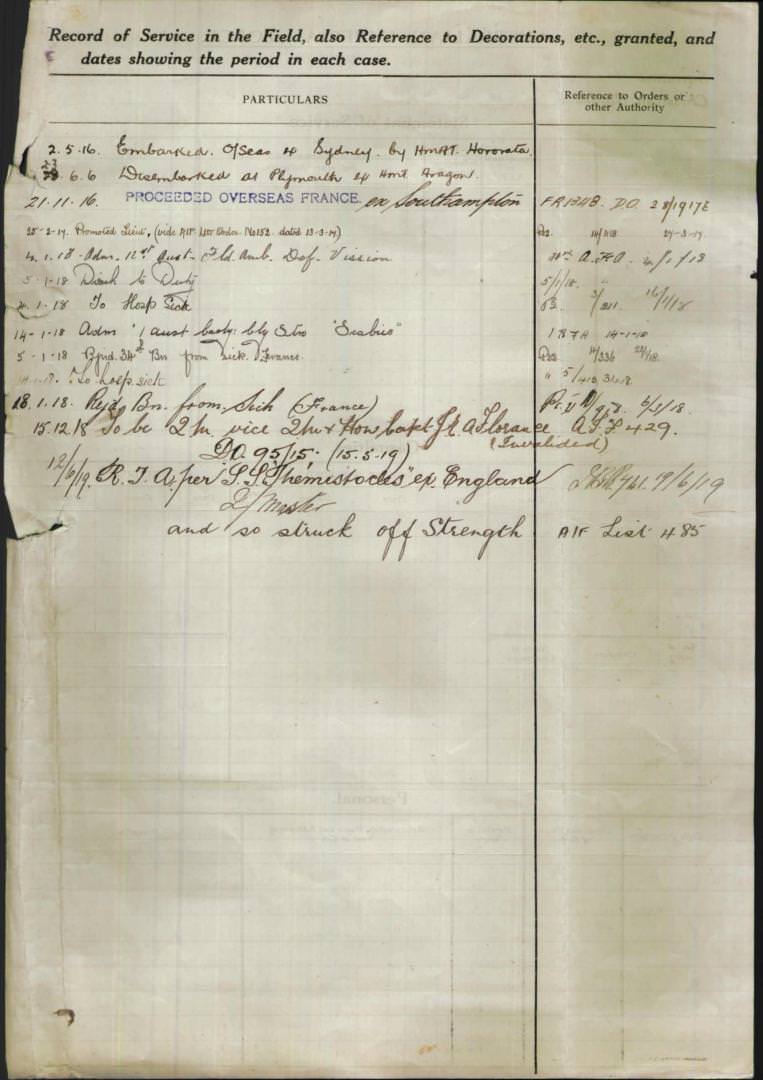 Record of Service in the Field, also Reference to Decorations, etc., granted, and
dates showing the period in each case.
PARTICULARS
Reference to Orders or
other Authority
2.5.16. Embarked. O/Seas ex Sydney. by HMAT. Hororata.
23 6.6 Disembarked at Plymouth ex Hmt Aragon.
21.11.16. PROCEEDED OVERSEAS FRANCE. ex Southampton FR1348. D.O. 28/1917E
25-2-17. Promoted Lieut, (vide AIF List Order No 152 dated 13-3-17) 27-3-17
4.1.18 Adm. Aust. Fld. Amb. Def. Vission
5-1-18 Disch to Duty 5/1/18.
1-18 To Hosp Sick 16/1/18
14-1-18 Adm 1 Aust Stn 14-1-18
5-1-18 Rejnd. 34th Bn from Sick. France.
1.18. To hosp sick
18.1.18. Rejd Bn. from Sick (France)
15.12.18 To be Q.M. vice Q.M & Hon. Capt J.R. A Florance A.I.F 429.
(Invalided)
D.O. 95/15 (15.5.19)
12/6/19. R.T.A. per S.S "Themistocles" ex England 9/6/19
Q/Master
and so struck off Strength AIF List 485
Personal.